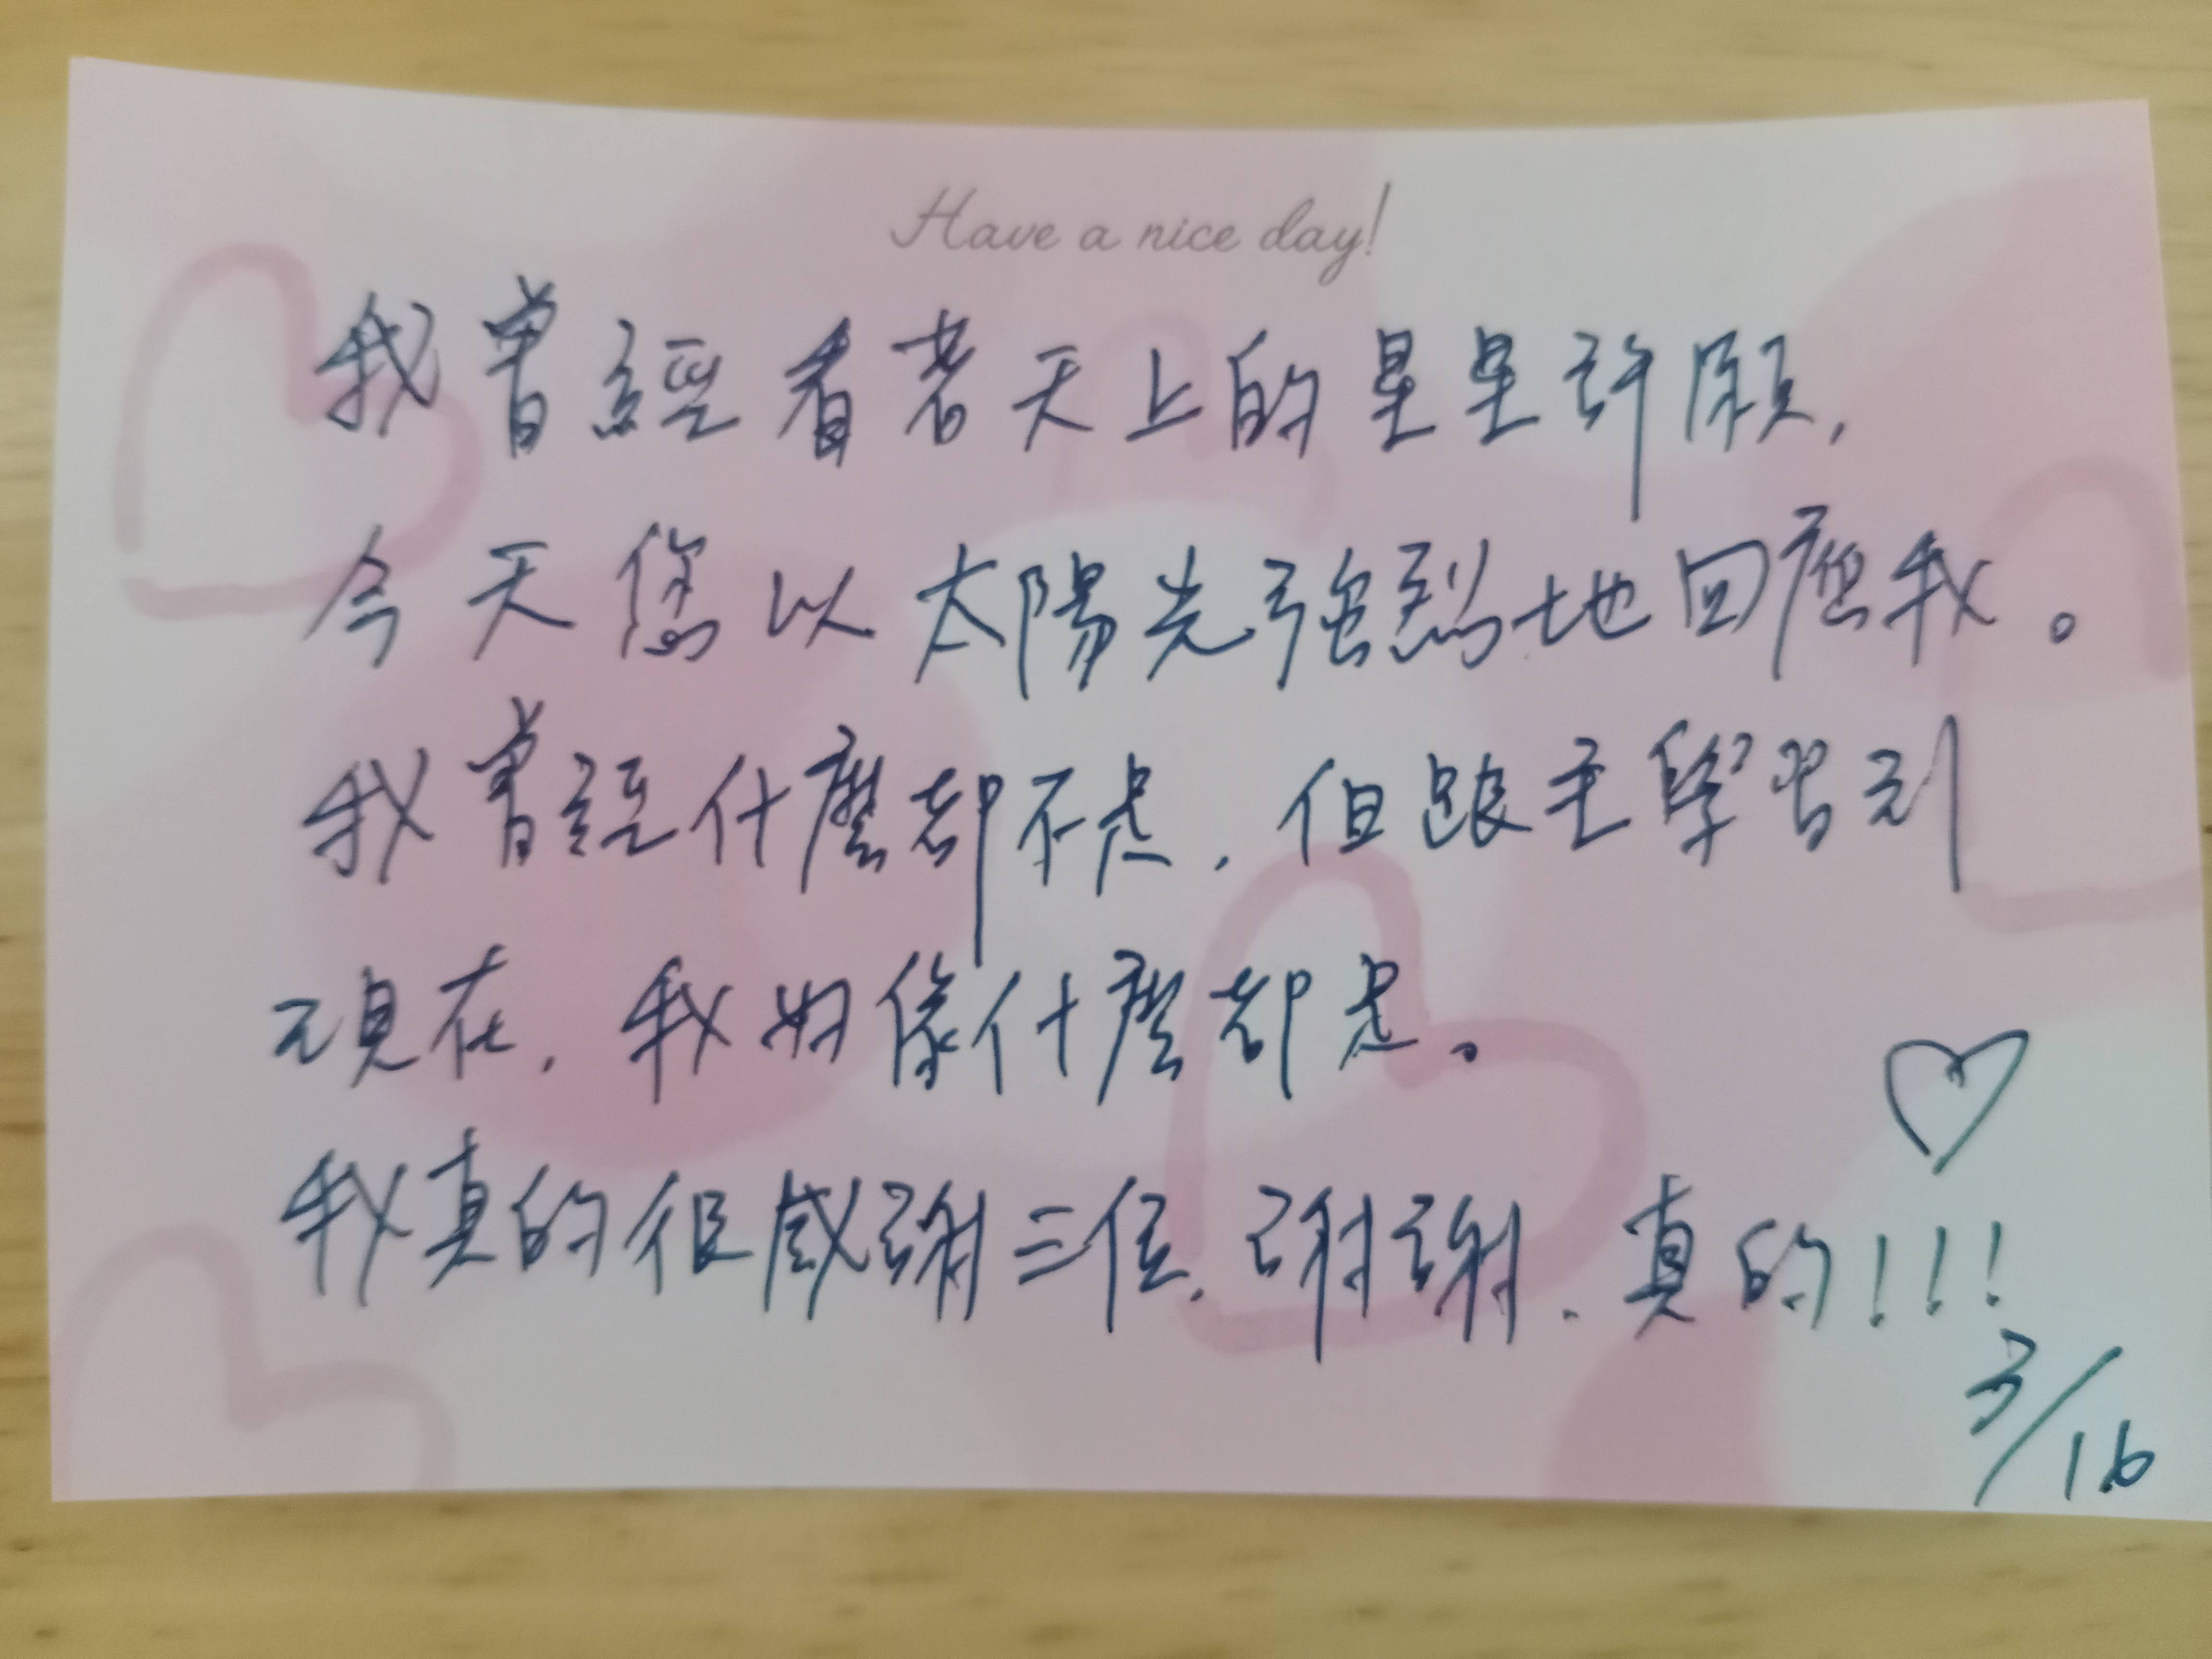 Have a nice day!
我曾經看著天上的星星許願,
今天您以太陽光強烈地回應我。
我曾經什麼都不是,但跟主學習到
現在,我好像什麼都是。
我真的很感謝三位,謝謝.真的!!!
3/16